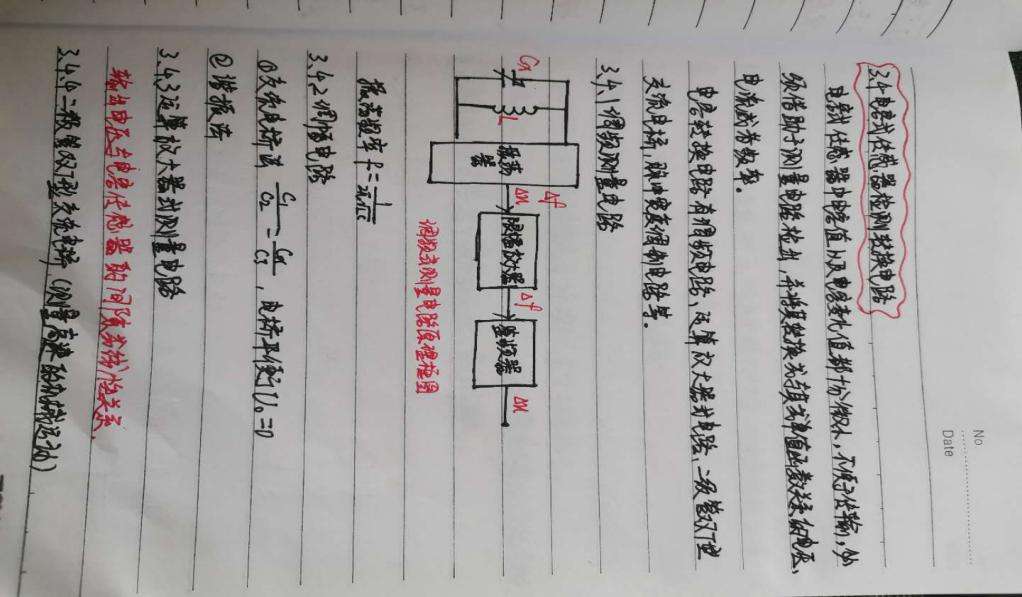 No
Date
3.4 电容式传感器检测转换电路
电容式传感器中电容值以及电容变化值都十分微小,不便于传输,必
须借助于测量电路检出,并将其转换成与其成单值函数关系的电压、
电流或者频率。
电容转换电路有调频电路、运算放大器式电路、二极管双T型
交流电桥,脉冲宽度调制电路等。
3.4.1 调频测量电路
Cx
L
振荡器
Δf
Δu
限幅放大器
Δf
鉴频器
Δu
调频式测量电路原理框图
振荡频率 f=1/2π√LC
3.4.2 调幅电路
①交流电桥法 C1/C2=Cx/C3,电桥平衡,U0=0
②谐振法
3.4.3 运算放大器式测量电路
输出电压与电容传感器的间隙成线性关系.
3.4.4 二极管双T型交流电桥 (测量高速的机械运动)